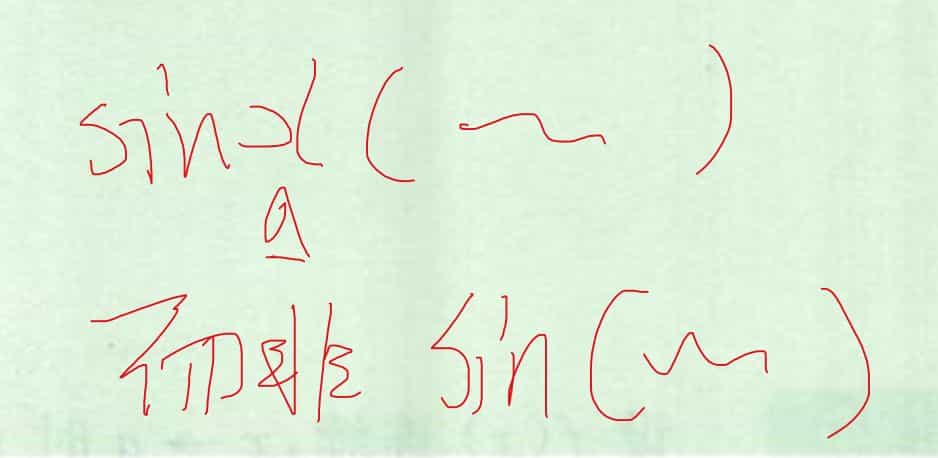 sinx(~)
a
而非 sin(~)